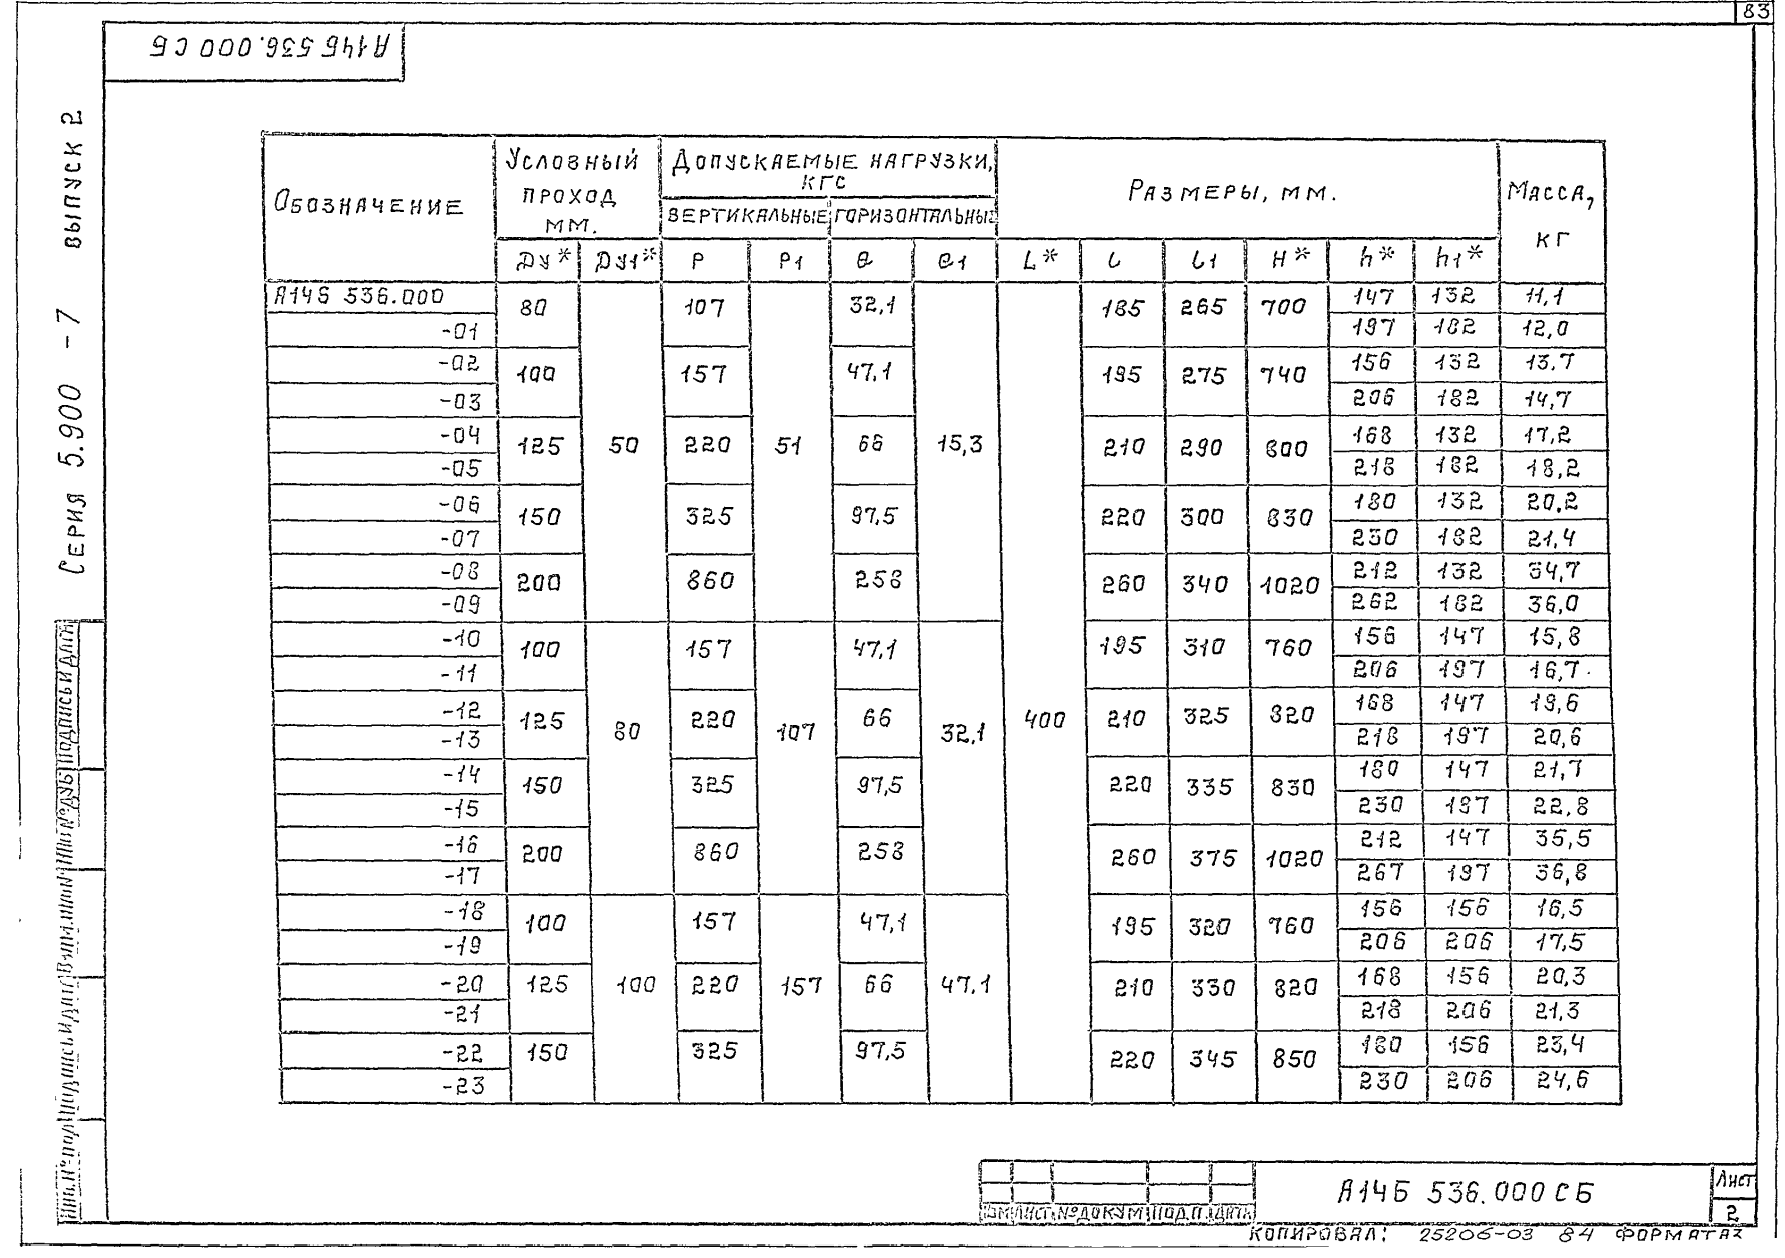 83
А14Б 536.000 СБ
Серия 5.900 -7 выпуск 2
Обозначение | Условный проход мм. | Допускаемые нагрузки, кгс | Размеры, мм. | Масса, кг
вертикальные | горизонтальные
Ду* | Ду1* | P | P1 | Q | Q1 | L* | l | l1 | H* | h* | h1*
А14Б 536.000 | 80 | 50 | 107 | 51 | 32,1 | 15,3 | 400 | 185 | 265 | 700 | 147 | 132 | 11,1
-01 | 197 | 182 | 12,0
-02 | 100 | 157 | 47,1 | 195 | 275 | 740 | 156 | 132 | 13,7
-03 | 206 | 182 | 14,7
-04 | 125 | 220 | 66 | 210 | 290 | 800 | 168 | 132 | 17,2
-05 | 218 | 182 | 18,2
-06 | 150 | 325 | 97,5 | 220 | 300 | 830 | 180 | 132 | 20,2
-07 | 230 | 182 | 21,4
-08 | 200 | 860 | 258 | 260 | 340 | 1020 | 212 | 132 | 34,7
-09 | 262 | 182 | 36,0
-10 | 100 | 80 | 157 | 107 | 47,1 | 32,1 | 195 | 310 | 760 | 156 | 147 | 15,8
-11 | 206 | 197 | 16,7
-12 | 125 | 220 | 66 | 210 | 325 | 820 | 168 | 147 | 19,6
-13 | 218 | 197 | 20,6
-14 | 150 | 325 | 97,5 | 220 | 335 | 830 | 180 | 147 | 21,7
-15 | 230 | 197 | 22,8
-16 | 200 | 860 | 258 | 260 | 375 | 1020 | 212 | 147 | 35,5
-17 | 267 | 197 | 36,8
-18 | 100 | 100 | 157 | 157 | 47,1 | 47,1 | 195 | 320 | 760 | 156 | 156 | 16,5
-19 | 206 | 206 | 17,5
-20 | 125 | 220 | 66 | 210 | 330 | 820 | 168 | 156 | 20,3
-21 | 218 | 206 | 21,3
-22 | 150 | 325 | 97,5 | 220 | 345 | 850 | 180 | 156 | 23,4
-23 | 230 | 206 | 24,6
Инв.№ подл Подпись и дата Взам.инв№ Инв№ дубл Подпись и дата
Изм Лист №докум Подп. Дата
А14Б 536.000 СБ
Лист
2
Копировал: 25206-03 84 Формат А3